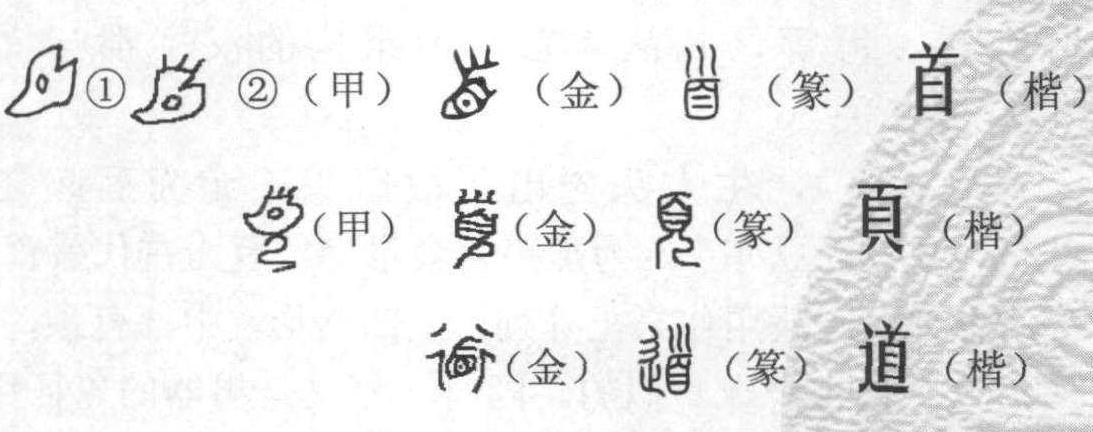 ①②（甲）（金）（篆）首（楷）
（甲）（金）（篆）頁（楷）
（金）（篆）道（楷）